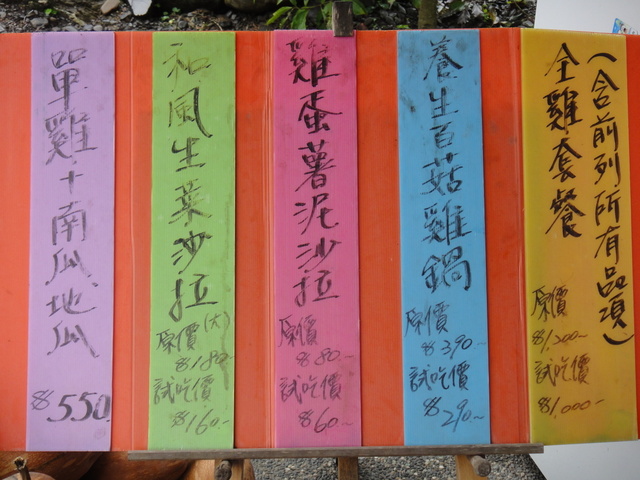 （含前列所有品項）
全雞套餐
原價
$1,200~
試吃價
$1,000~
養生百菇雞鍋
原價
$390~
試吃價
$290~
雞蛋薯泥沙拉
原價
$80~
試吃價
$60~
和風生菜沙拉
原價(大)
$180
試吃價
$160~
單雞+南瓜、地瓜
$550